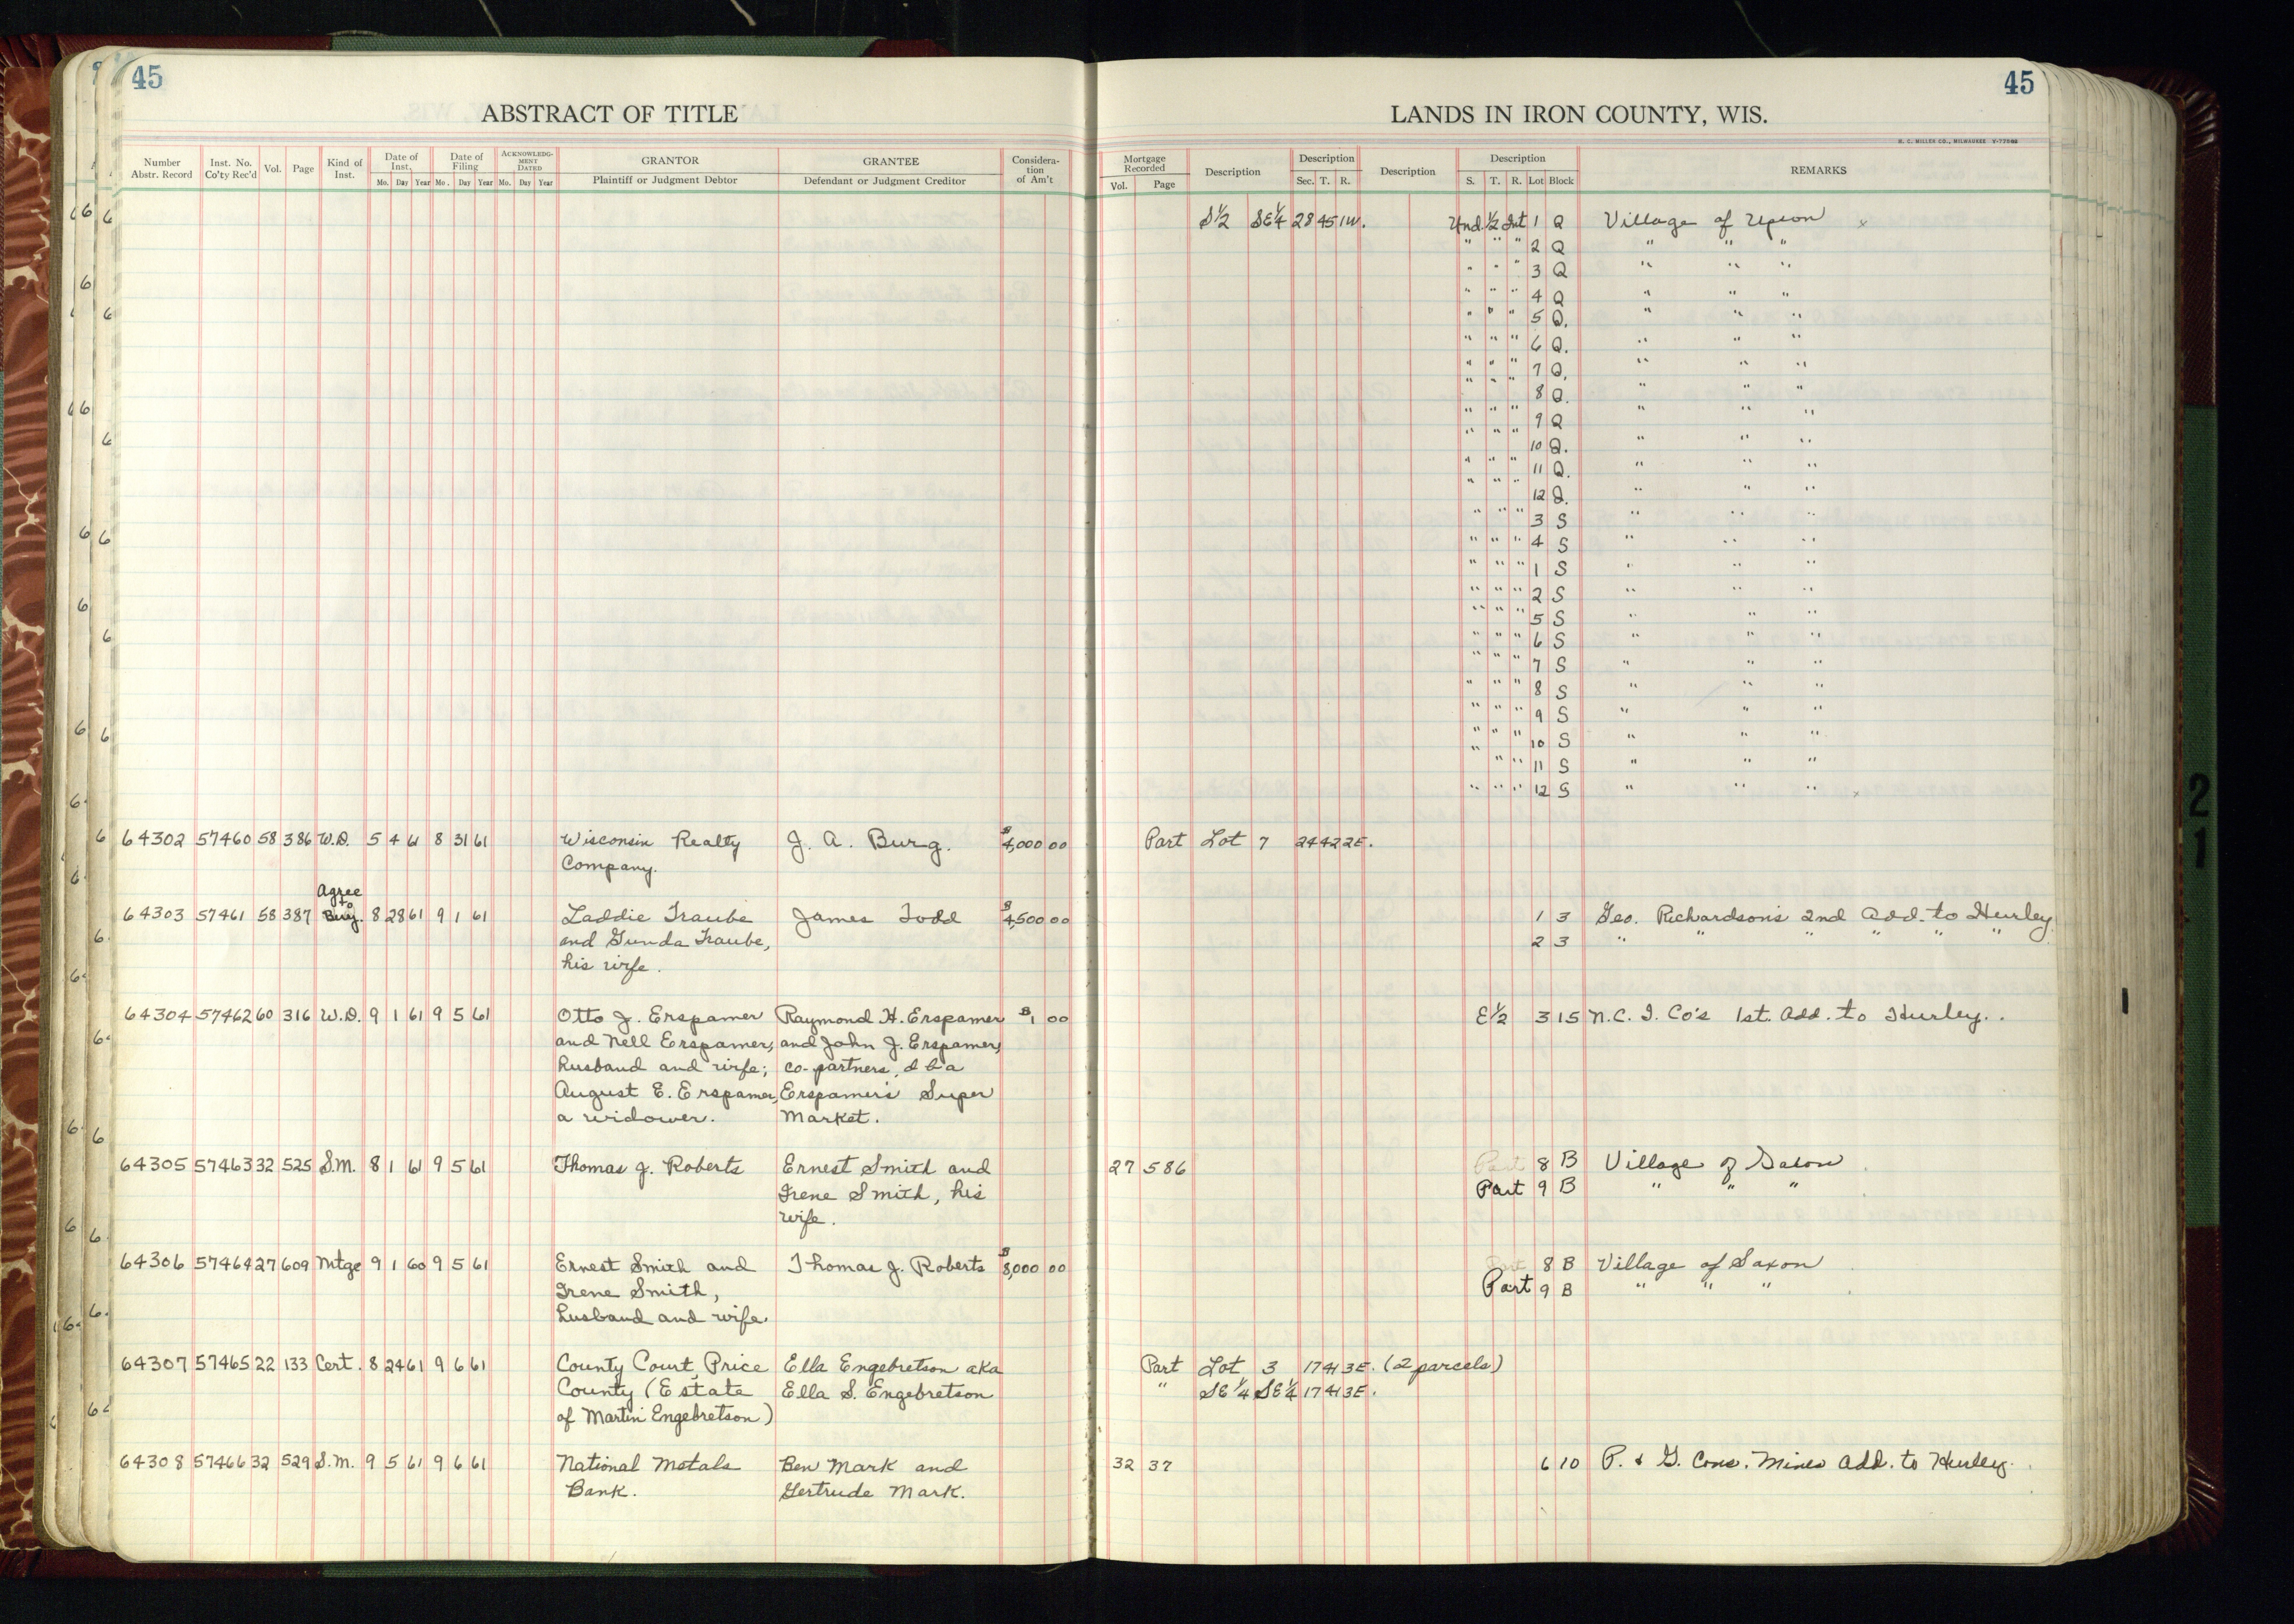 45
45
ABSTRACT OF TITLE
LANDS IN IRON COUNTY, WIS.
H. C. MILLER CO., MILWAUKEE
Number Abstr. Record Inst. No. Co'ty Rec'd Vol. Page Kind of Inst. Date of Inst. Mo. Day Year Date of Filing Mo. Day Year ACKNOWLEDGMENT DATED Mo. Day Year GRANTOR Plaintiff or Judgment Debtor GRANTEE Defendant or Judgment Creditor Consideration of Am't
Mortgage Recorded Vol. Page Description Description Sec. T. R. Description Description S. T. R. Lot Block REMARKS
S½ SE¼ 28 45 1W. Und. ½ Int 1 Q Village of Upson
" " " 2 Q " " "
" " " 3 Q " " "
" " " 4 Q " " "
" " " 5 Q. " " "
" " " 6 Q. " " "
" " " 7 Q. " " "
" " " 8 Q. " " "
" " " 9 Q " " "
" " " 10 Q. " " "
" " " 11 Q. " " "
" " " 12 Q. " " "
" " " 3 S " " "
" " " 4 S " " "
" " " 1 S " " "
" " " 2 S " " "
" " " 5 S " " "
" " " 6 S " " "
" " " 7 S " " "
" " " 8 S " " "
" " " 9 S " " "
" " " 10 S " " "
" " " 11 S " " "
" " " 12 S " " "
64302 57460 58 386 W.D. 5 4 61 8 31 61 Wisconsin Realty J. A. Burg. $4,000 00 Part Lot 7 24 42 2E.
Company.
Agree
to
64303 57461 58 387 Buy. 8 28 61 9 1 61 Laddie Traube James Todd $4,500 00 1 3 Geo. Richardson's 2nd Add. to Hurley
and Gunda Traube, 2 3 " " " " " "
his wife.
64304 57462 60 316 W.D. 9 1 61 9 5 61 Otto J. Erspamer Raymond H. Erspamer $1 00 E½ 3 15 N.C.I. Co's 1st. Add. to Hurley.
and Nell Erspamer, and John J. Erspamer,
husband and wife; co-partners, d b a
August E. Erspamer, Erspamer's Super
a widower. Market.
64305 57463 32 525 S.M. 8 1 61 9 5 61 Thomas J. Roberts Ernest Smith and 27 586 Part 8 B Village of Saxon
Irene Smith, his Part 9 B " " "
wife.
64306 57464 27 609 Mtge 9 1 60 9 5 61 Ernest Smith and Thomas J. Roberts $8,000 00 Part 8 B Village of Saxon
Irene Smith, Part 9 B " " "
husband and wife.
64307 57465 22 133 Cert. 8 24 61 9 6 61 County Court, Price Ella Engebretson aka Part Lot 3 17 41 3E. (2 parcels)
County (Estate Ella S. Engebretson " SE¼ SE¼ 17 41 3E.
of Martin Engebretson)
64308 57466 32 529 S.M. 9 5 61 9 6 61 National Metals Ben Mark and 32 37 6 10 P. & G. Cons. Mines Add. to Hurley.
Bank. Gertrude Mark.
21